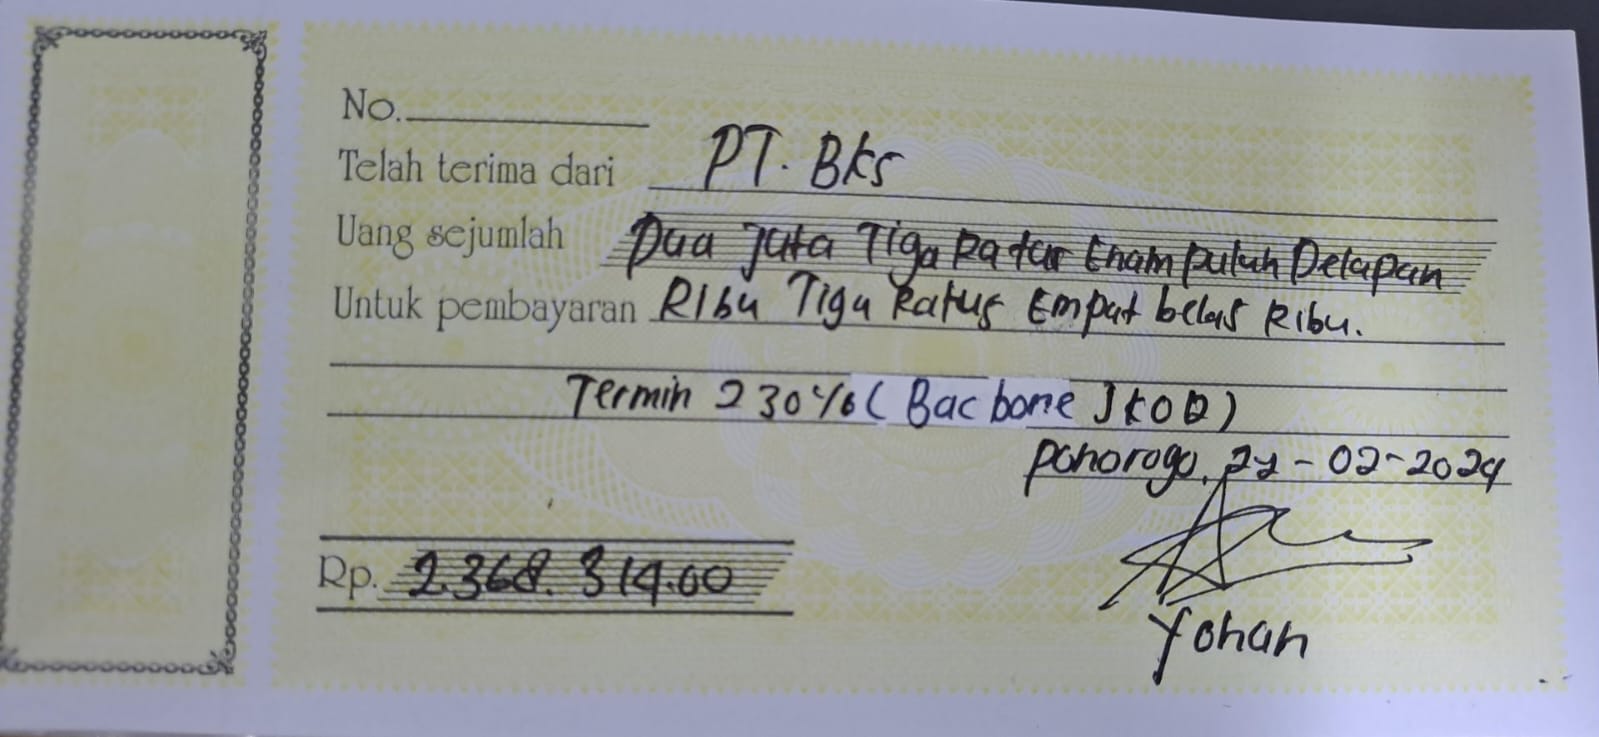 No.
Telah terima dari PT. BKS
Uang sejumlah Dua Juta Tiga Ratus Enam Puluh Delapan
Untuk pembayaran Ribu Tiga Ratus Empat belas Ribu.
Termin 2 30% (Bac bone JKOQ)
Ponorogo, 22-02-2024
Rp. 2.368.314.00
Yohan